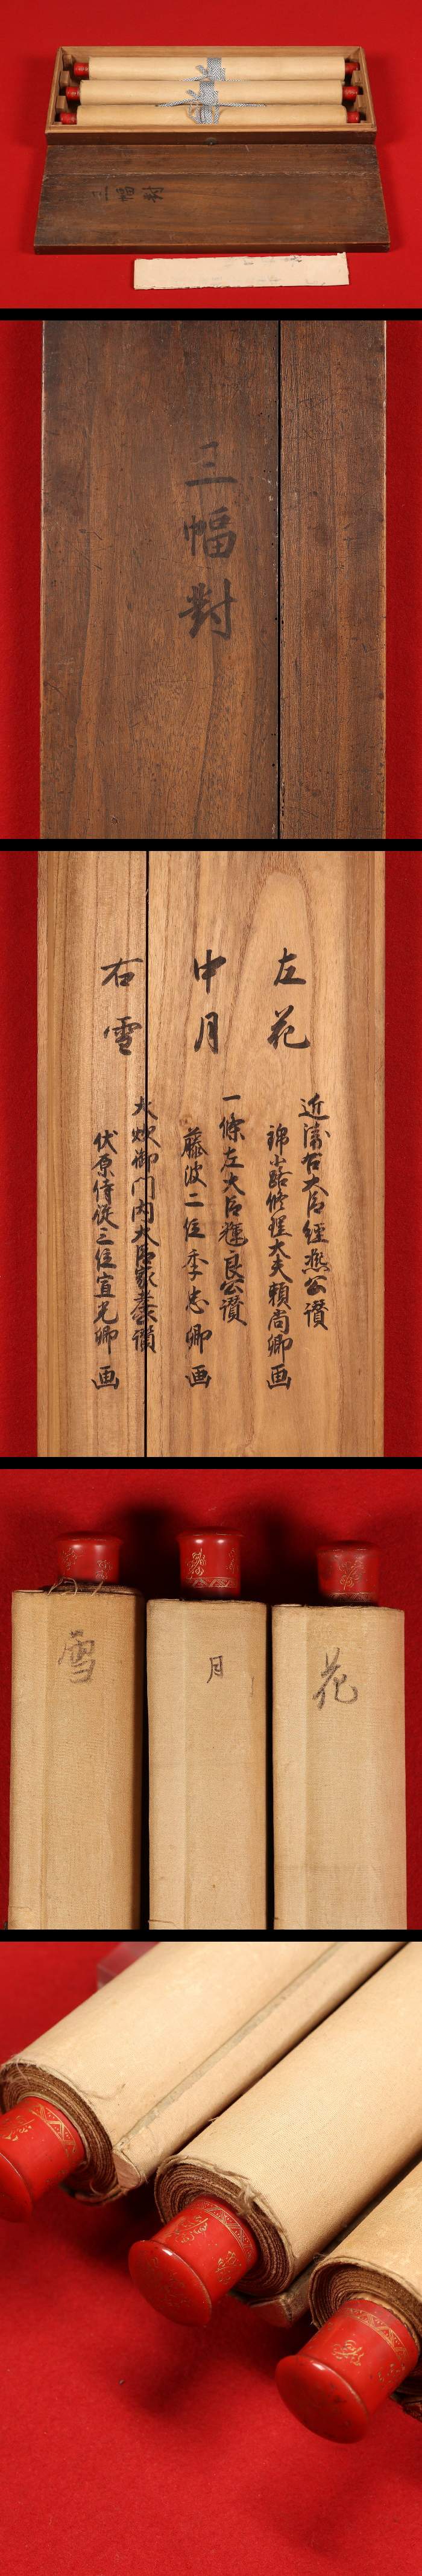 三幅對
三幅對
左花
近衛右大臣經熙公讃
錦小路修理大夫頼尚卿画
中月
一條左大臣輝良公讃
藤波二位季忠卿画
右雪
大炊御門内大臣家孝公讃
伏原侍従三位宣光卿画
花
月
雪